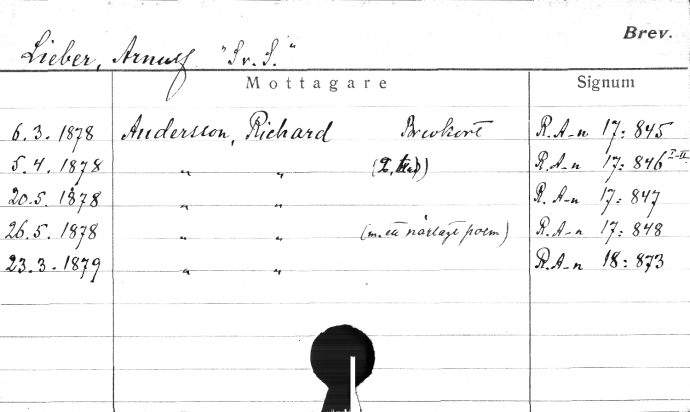 Brev.
Lieber, Arnulf "Sv. S."
Mottagare Signum
6.3.1878 Andersson, Richard Brevkort R.A-n 17:845
5.4.1878 " " R.A-n 17:846 I-II
20.5.1878 " " R.A-n 17:847
26.5.1878 " " (m. ett närlagt poem) R.A-n 17:848
23.3.1879 " " R.A-n 18:873